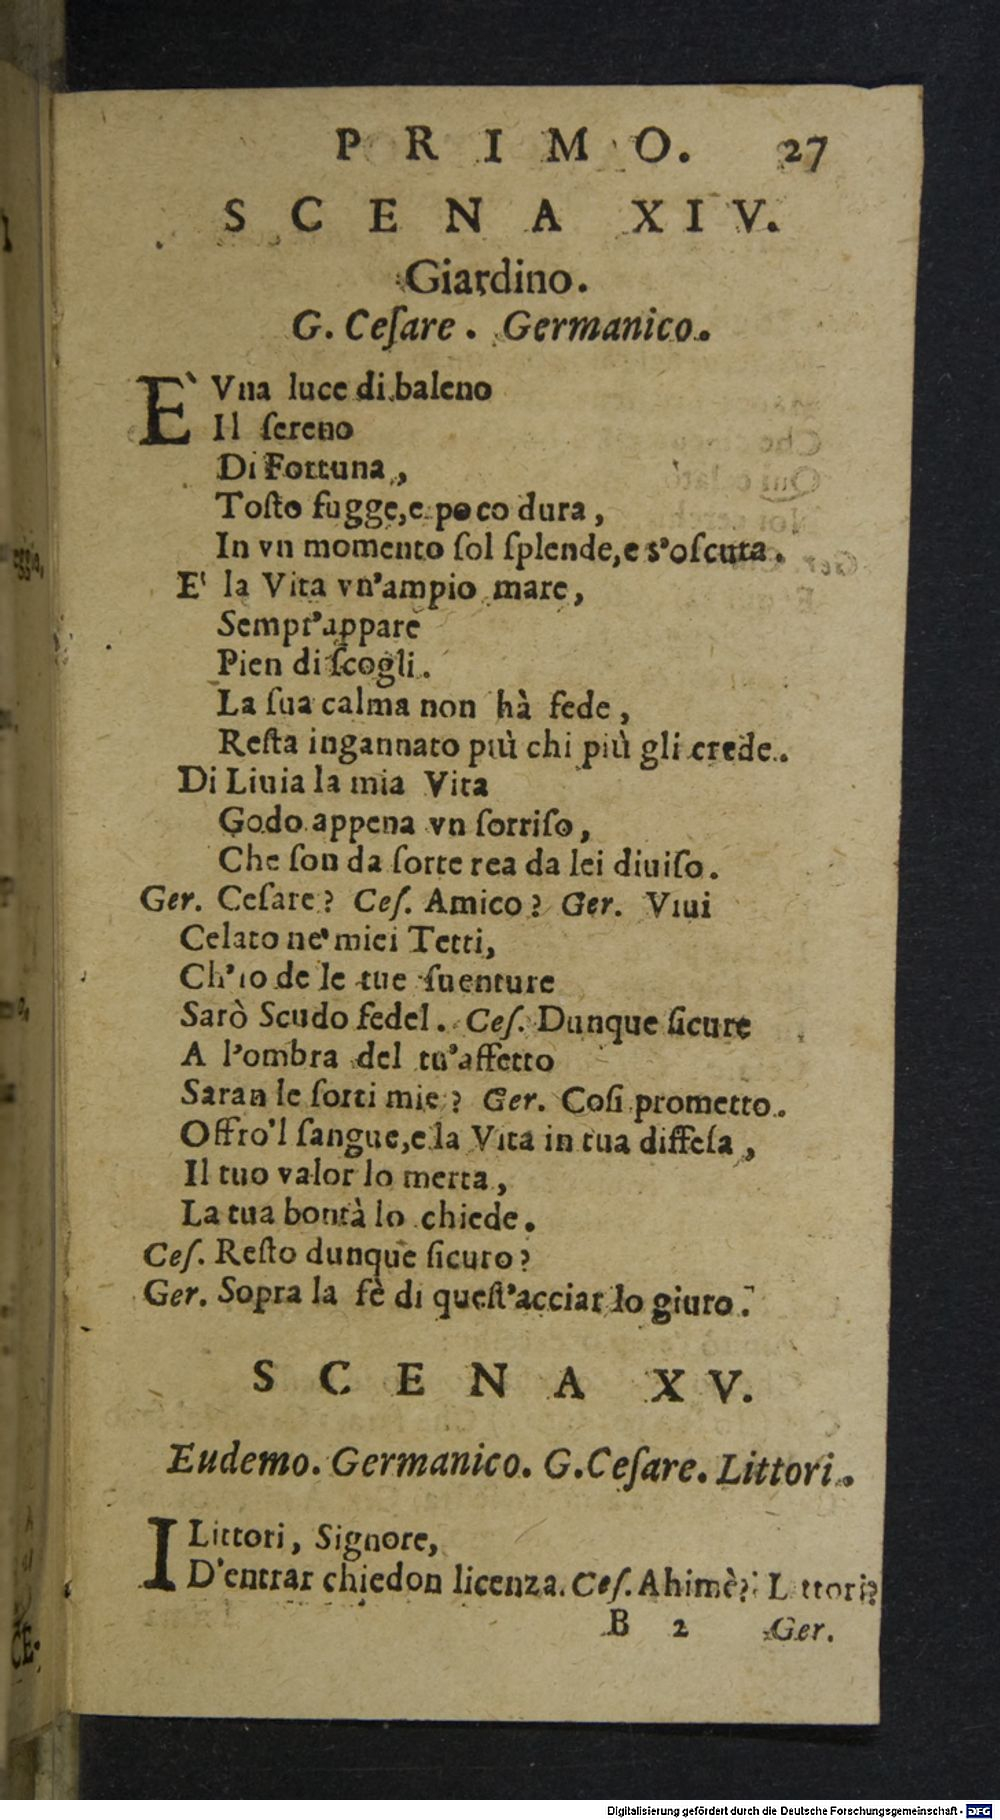 PRIMO. 27
SCENA XIV.
Giardino.
G. Ceſare. Germanico.
E` Vna luce di baleno
Il ſereno
Di Fortuna,
Toſto fugge,e poco dura,
In vn momento ſol ſplende,e s'oſcura.
E' la Vita vn'ampio mare,
Sempr'appare
Pien di ſcogli.
La ſua calma non hà fede,
Reſta ingannato più chi più gli crede.
Di Liuia la mia Vita
Godo appena vn ſorriſo,
Che ſon da ſorte rea da lei diuiſo.
Ger. Ceſare? Ceſ. Amico? Ger. Viui
Celato ne' miei Tetti,
Ch'io de le tue ſuenture
Sarò Scudo fedel. Ceſ. Dunque ſicure
A l'ombra del tu'affetto
Saran le ſorti mie? Ger. Coſi prometto.
Offro'l ſangue,e la Vita in tua diffeſa,
Il tuo valor lo merta,
La tua bontà lo chiede.
Ceſ. Reſto dunque ſicuro?
Ger. Sopra la fè di queſt'acciar lo giuro.
SCENA XV.
Eudemo. Germanico. G.Ceſare. Littori.
I Littori, Signore,
D'entrar chiedon licenza. Ceſ. Ahimè? Littori?
B 2 Ger.
Digitalisierung gefördert durch die Deutsche Forschungsgemeinschaft - DFG